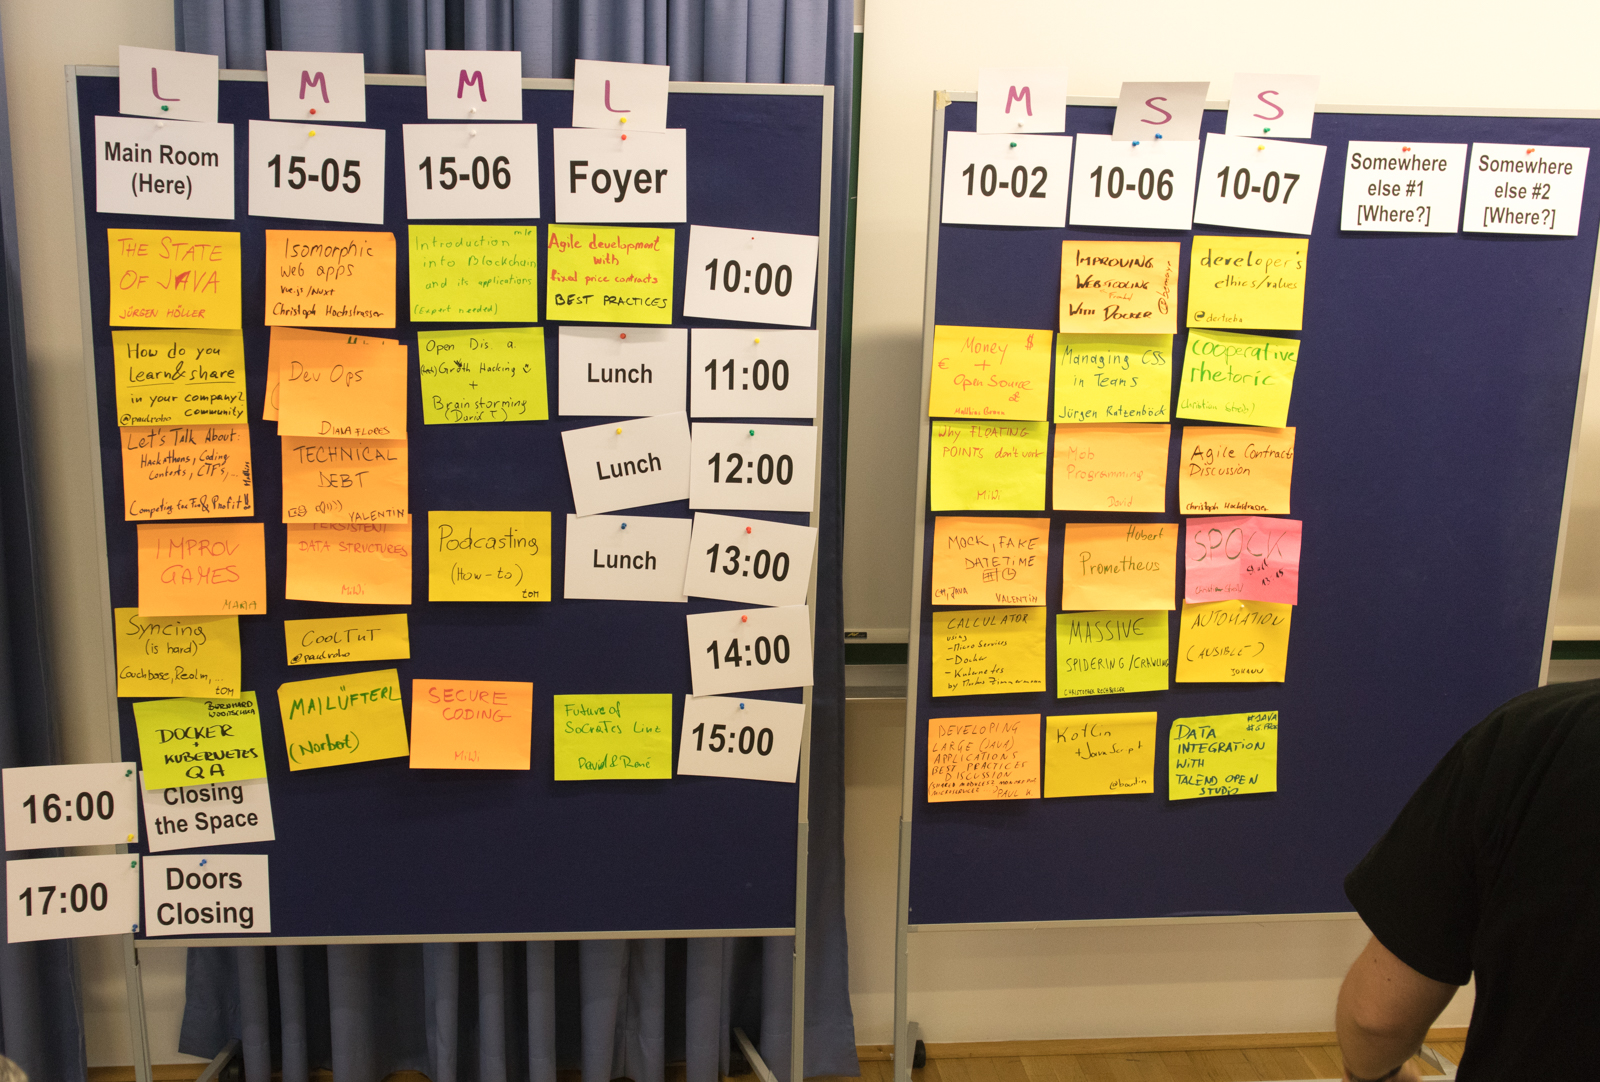 L
M
M
L
Main Room
(Here)
15-05
15-06
Foyer
THE STATE
OF JAVA
JÜRGEN HÖLLER
Isomorphic
web apps
Vue.js / Nuxt
Christoph Hochstrasser
Introduction
into Blockchain
and its applications
(Expert needed)
Agile development
with
fixed price contracts
BEST PRACTICES
10:00
How do you
learn & share
in your company?
community
@paulroho
Dev Ops
DIANA FLORES
Open Dis. a.
Growth Hacking
+
Brainstorming
(David T.)
Lunch
11:00
Let's Talk About:
Hackathons, Coding
Contests, CTF's, ...
Competing for Fun & Profit!
TECHNICAL
DEBT
VALENTIN
Lunch
12:00
IMPROV
GAMES
MARIA
PERSISTENT
DATA STRUCTURES
MiWi
Podcasting
(How-to)
tom
Lunch
13:00
Syncing
(is hard)
Couchbase, Realm, ...
tom
CoolTuT
@paulroho
14:00
BURKHARD
DOCKER
+
KUBERNETES
QA
MAILÜFTERL
(Norbert)
SECURE
CODING
MiWi
Future of
SoCraTes Linz
David & René
15:00
16:00
Closing
the Space
17:00
Doors
Closing
M
S
S
10-02
10-06
10-07
Somewhere
else #1
[Where?]
Somewhere
else #2
[Where?]
IMPROVING
WITH DOCKER
developer's
ethics/values
Money $
€ +
Open Source
Managing CSS
in Teams
Jürgen Ratzenböck
cooperative
rhetoric
Why FLOATING
POINTS don't work
MiWi
Mob
Programming
David
Agile Contracts
Discussion
Christoph Hochstrasser
MOCK, FAKE
DATETIME
C#, JAVA
VALENTIN
Hubert
Prometheus
SPOCK
CALCULATOR
using
- Micro Services
- Docker
- Kubernetes
by Markus Zimmermann
MASSIVE
SPIDERING/CRAWLING
AUTOMATION
(ANSIBLE)
JOHANN
DEVELOPING
LARGE (JAVA)
APPLICATIONS
BEST PRACTICES
DISCUSSION
PAUL H.
Kotlin
+ JavaScript
#JAVA
DATA
INTEGRATION
WITH
TALEND OPEN
STUDIO